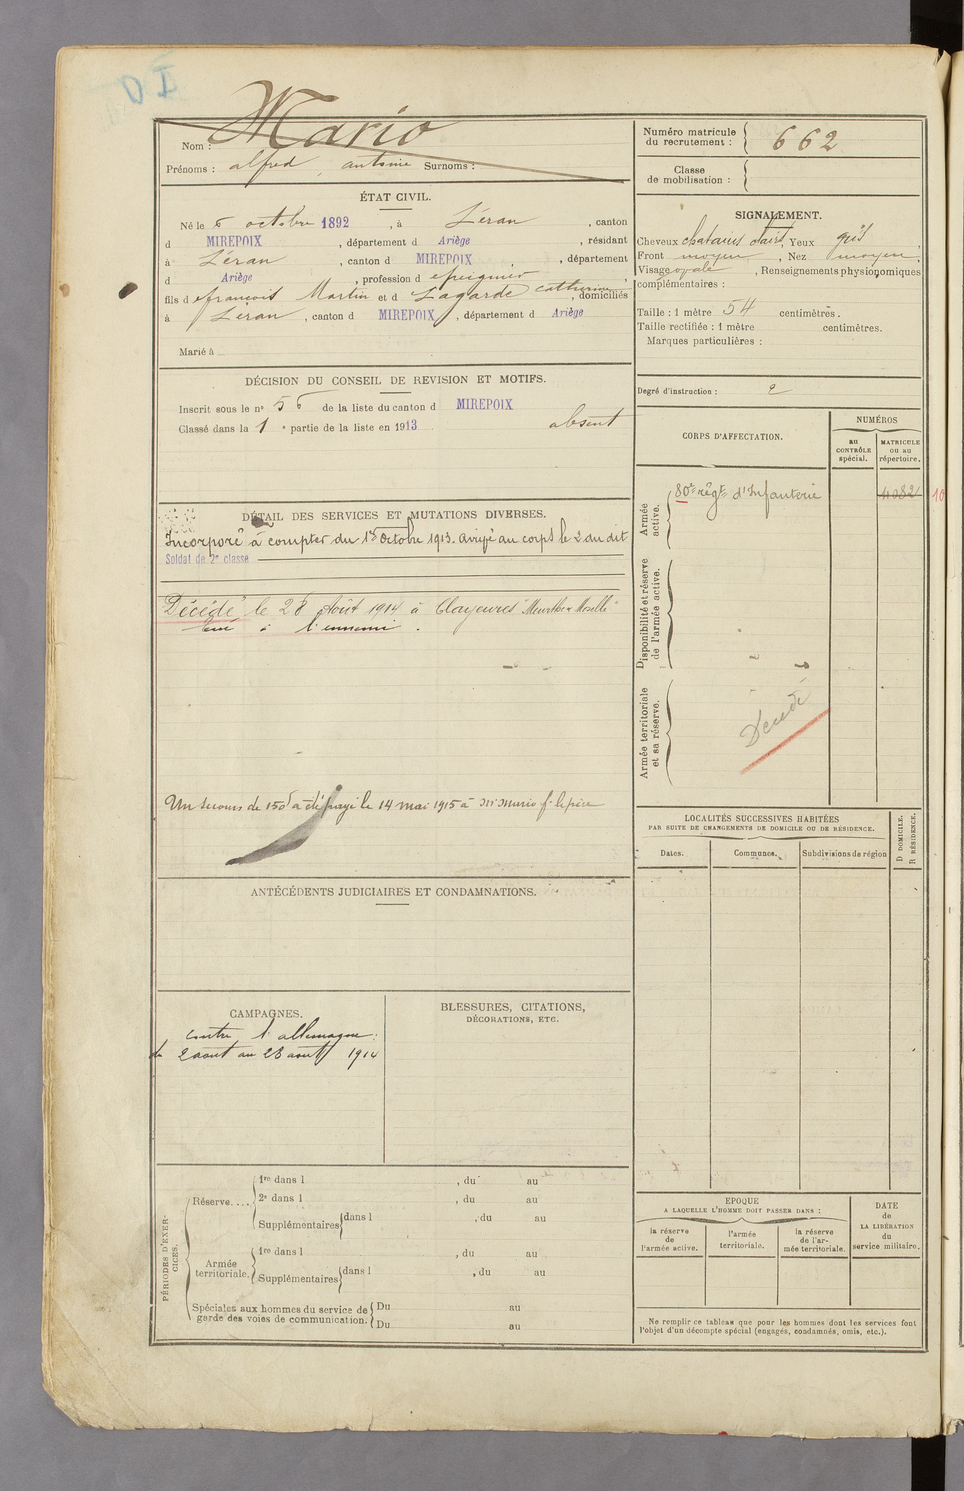 Nom : Mario
Prénoms : alfred, antoine Surnoms :
Numéro matricule du recrutement : 662
Classe de mobilisation :
ÉTAT CIVIL.
Né le 6 octobre 1892, à Léran, canton
d MIREPOIX, département d Ariège, résidant
à Léran, canton d MIREPOIX, département
d Ariège, profession d
fils d françois Martin et d Lagarde Catherine, domiciliés
à Léran, canton d MIREPOIX, département d Ariège
Marié à
DÉCISION DU CONSEIL DE REVISION ET MOTIFS.
Inscrit sous le n° 56 de la liste du canton d MIREPOIX
Classé dans la 1e partie de la liste en 1913. absent
DÉTAIL DES SERVICES ET MUTATIONS DIVERSES.
Incorporé à compter du 1er Octobre 1913. arrivé au corps le 2 du dit
Soldat de 2e classe
Décédé le 28 Août 1914 à Clayeures "Meurthe & Moselle"
tué à l'ennemi.
Un secours de 150f a été payé le 14 mai 1915 à Mr Mario f. le père
ANTÉCÉDENTS JUDICIAIRES ET CONDAMNATIONS.
CAMPAGNES.
contre l'allemagne :
du 2 aout au 28 aout 1914
BLESSURES, CITATIONS,
DÉCORATIONS, ETC.
PÉRIODES D'EXERCICES.
Réserve....
1re dans l , du au
2e dans l , du au
Supplémentaires dans l , du au
Armée territoriale.
1re dans l , du au
Supplémentaires dans l , du au
Spéciales aux hommes du service de
garde des voies de communication.
Du au
Du au
SIGNALEMENT.
Cheveux chatains clairs, Yeux gris,
Front moyen, Nez moyen,
Visage ovale, Renseignements physionomiques
complémentaires :
Taille : 1 mètre 54 centimètres.
Taille rectifiée : 1 mètre centimètres.
Marques particulières :
Degré d'instruction : 2
CORPS D'AFFECTATION.
NUMÉROS
au CONTRÔLE spécial.
MATRICULE ou au répertoire.
Armée active.
80e régt d'Infanterie
4082
10
Disponibilité et réserve de l'armée active.
Armée territoriale et sa réserve.
Décédé
LOCALITÉS SUCCESSIVES HABITÉES
PAR SUITE DE CHANGEMENTS DE DOMICILE OU DE RÉSIDENCE.
D DOMICILE.
R RÉSIDENCE.
Dates.
Communes.
Subdivisions de région
EPOQUE
A LAQUELLE L'HOMME DOIT PASSER DANS :
la réserve de l'armée active.
l'armée territoriale.
la réserve de l'armée territoriale.
DATE de LA LIBÉRATION du service militaire.
Ne remplir ce tableau que pour les hommes dont les services font
l'objet d'un décompte spécial (engagés, condamnés, omis, etc.).